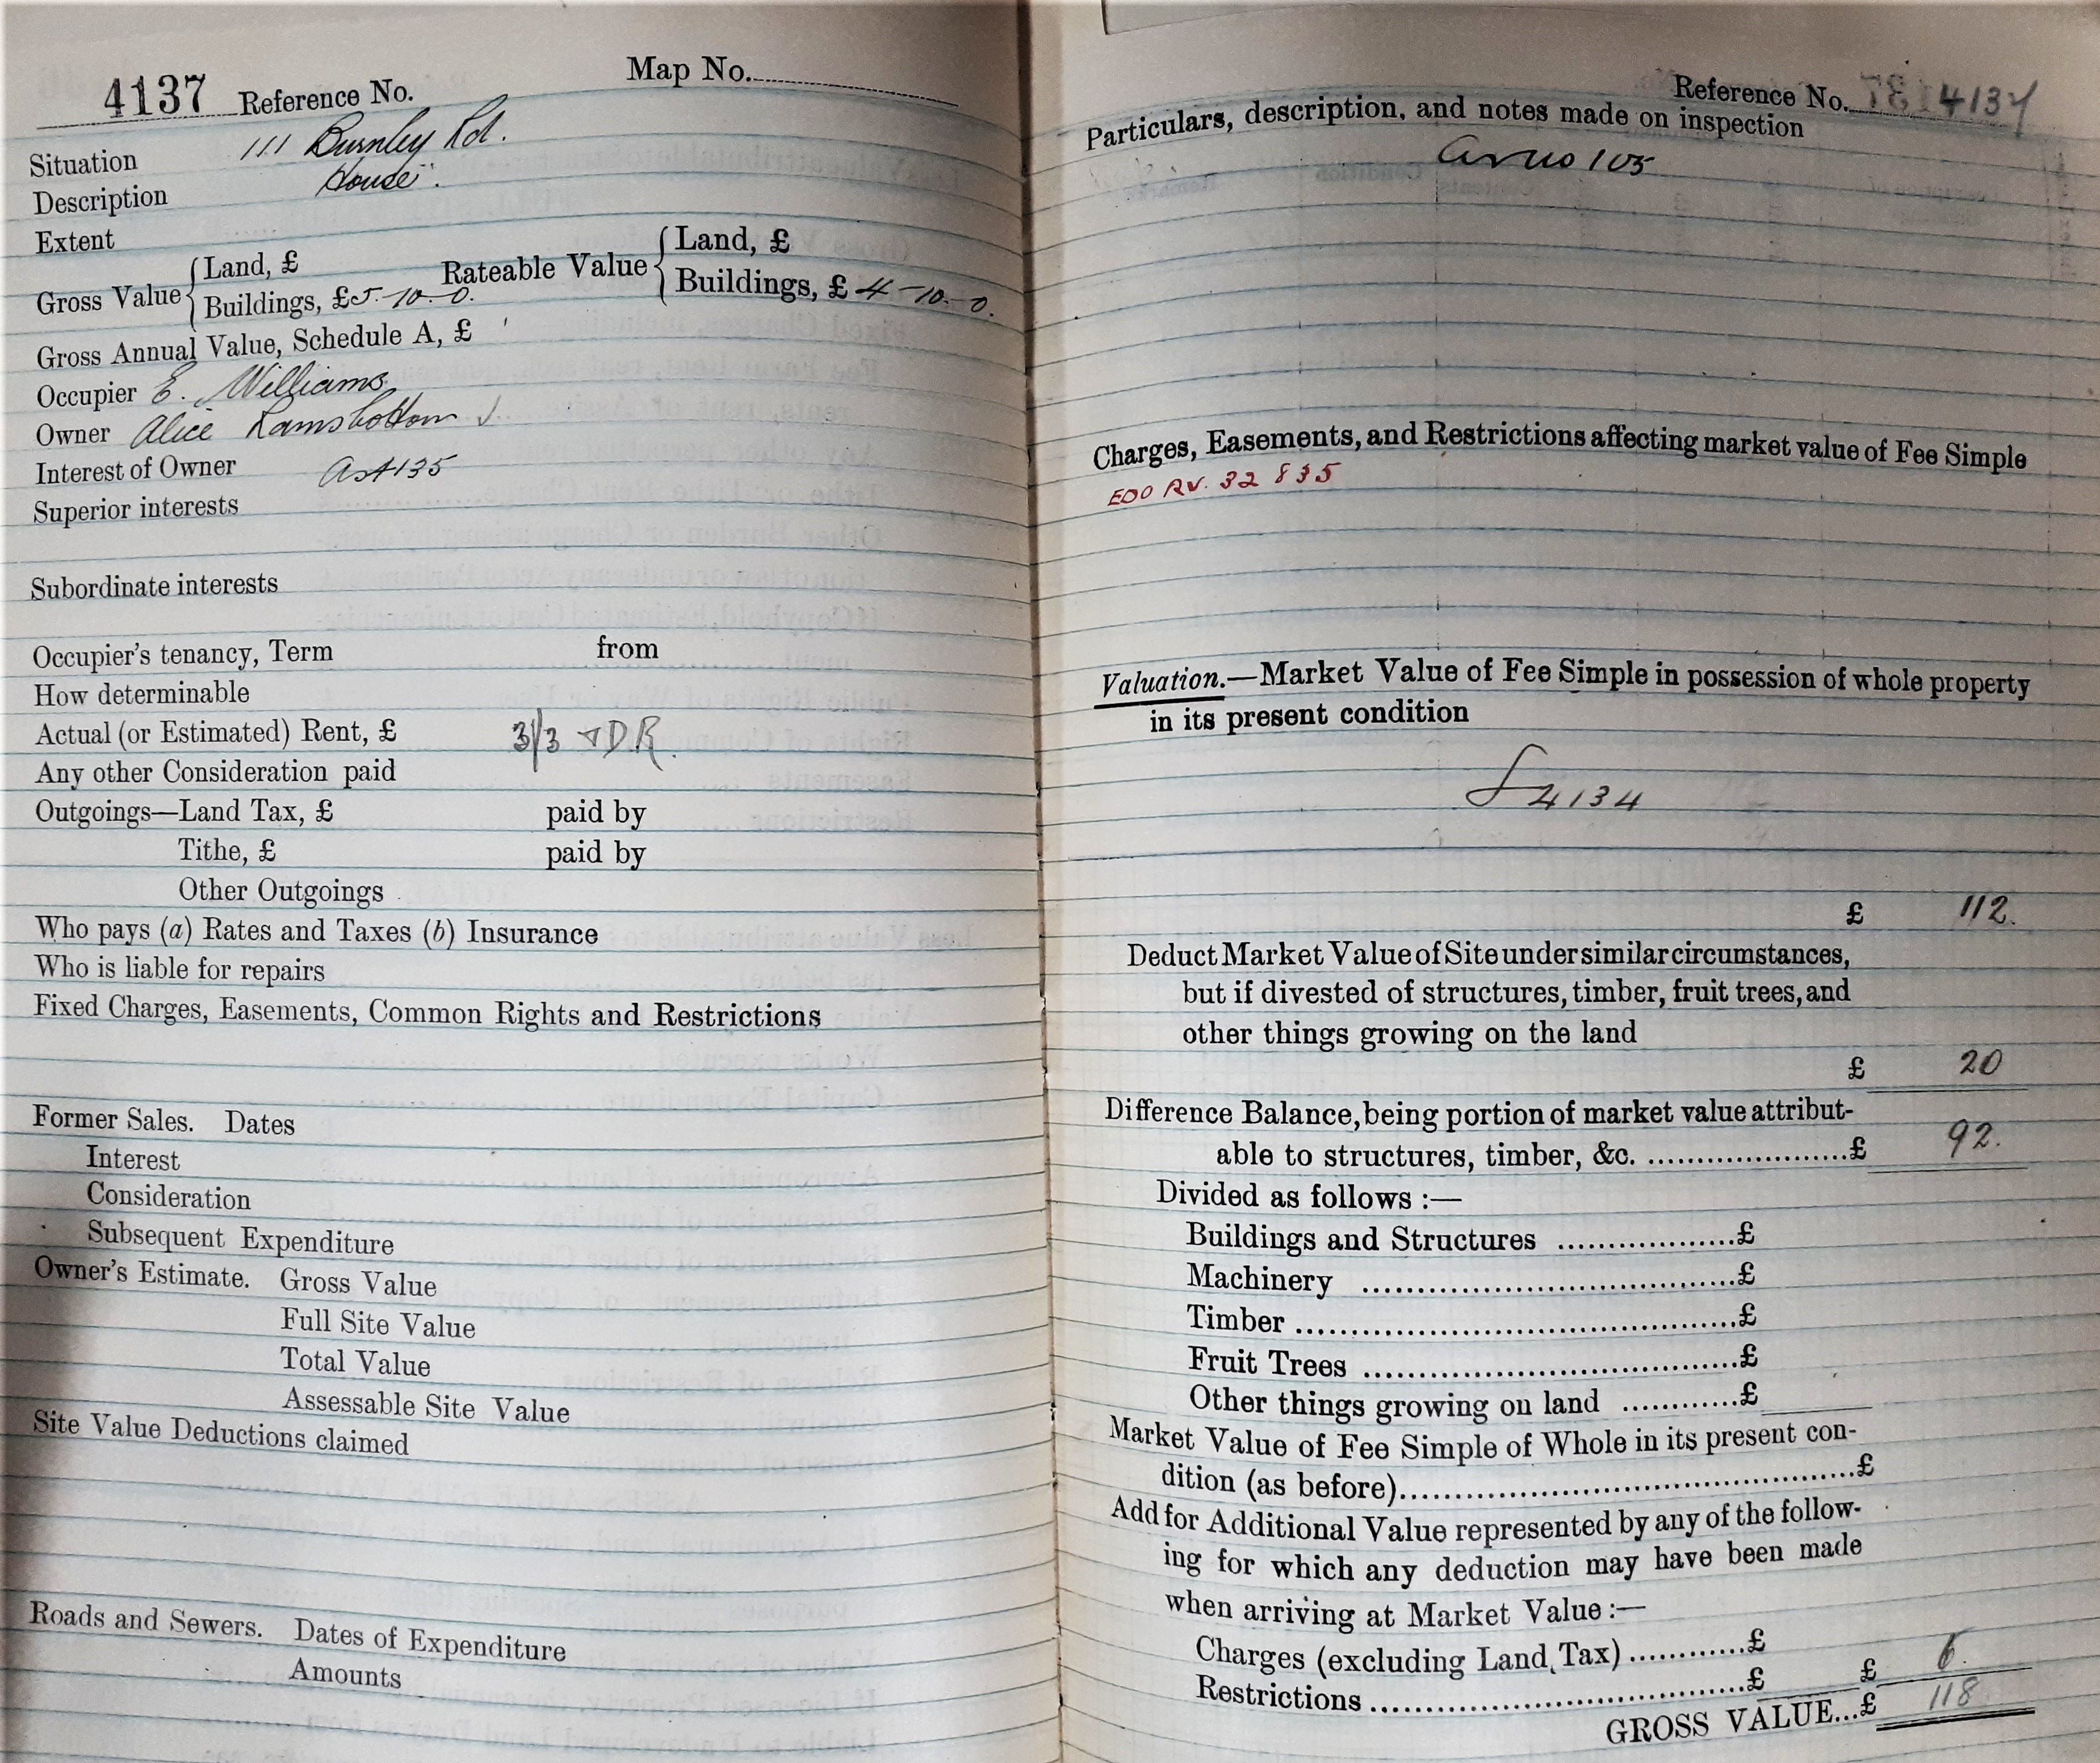 4137 Reference No. Map No.
Situation 111 Burnley Rd.
Description House
Extent
Gross Value { Land, £
Buildings, £5-10-0. Rateable Value { Land, £
Buildings, £ 4-10-0.
Gross Annual Value, Schedule A, £
Occupier E. Williams
Owner Alice Ramsbottom
Interest of Owner
Superior interests
Subordinate interests
Occupier's tenancy, Term from
How determinable
Actual (or Estimated) Rent, £ 3/3 + D.R.
Any other Consideration paid
Outgoings—Land Tax, £ paid by
Tithe, £ paid by
Other Outgoings
Who pays (a) Rates and Taxes (b) Insurance
Who is liable for repairs
Fixed Charges, Easements, Common Rights and Restrictions
Former Sales. Dates
Interest
Consideration
Subsequent Expenditure
Owner's Estimate. Gross Value
Full Site Value
Total Value
Assessable Site Value
Site Value Deductions claimed
Roads and Sewers. Dates of Expenditure
Amounts
Reference No. 4137
Particulars, description, and notes made on inspection
105
Charges, Easements, and Restrictions affecting market value of Fee Simple
EDO RV. 32 835
Valuation.—Market Value of Fee Simple in possession of whole property
in its present condition
4134
£ 112.
Deduct Market Value of Site under similar circumstances,
but if divested of structures, timber, fruit trees, and
other things growing on the land
£ 20
Difference Balance, being portion of market value attribut-
able to structures, timber, &c. ....................£ 92.
Divided as follows :—
Buildings and Structures ..................£
Machinery ......................................£
Timber ............................................£
Fruit Trees ......................................£
Other things growing on land ............£
Market Value of Fee Simple of Whole in its present con-
dition (as before)..............................................£
Add for Additional Value represented by any of the follow-
ing for which any deduction may have been made
when arriving at Market Value :—
Charges (excluding Land Tax) ............£
Restrictions ......................................£ £ 6.
GROSS VALUE...£ 118